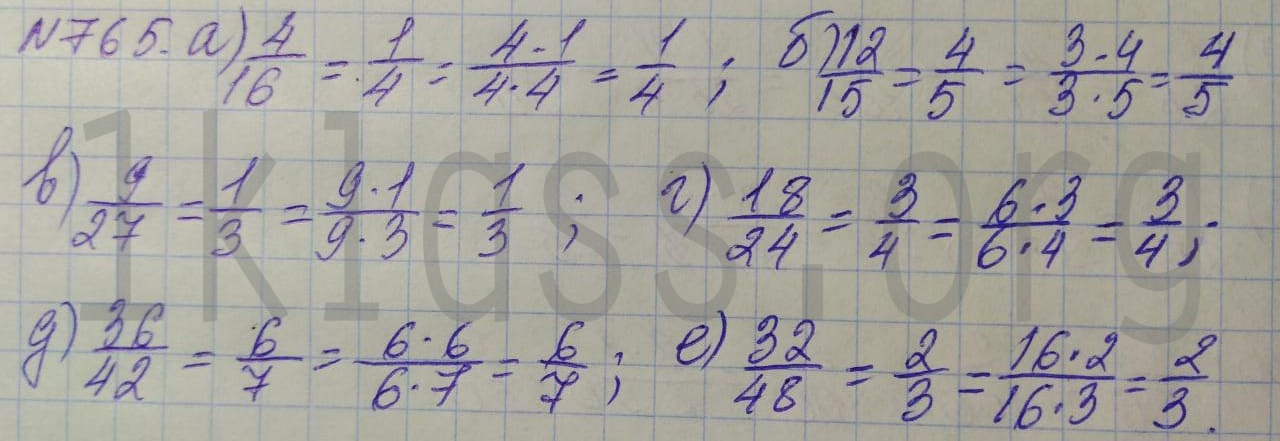 №765. а) 4/16 = 1/4 = 4·1/4·4 = 1/4 ; б) 12/15 = 4/5 = 3·4/3·5 = 4/5
в) 9/27 = 1/3 = 9·1/9·3 = 1/3 ; г) 18/24 = 3/4 = 6·3/6·4 = 3/4 ;
1klass.org
д) 36/42 = 6/7 = 6·6/6·7 = 6/7 ; е) 32/48 = 2/3 = 16·2/16·3 = 2/3 .